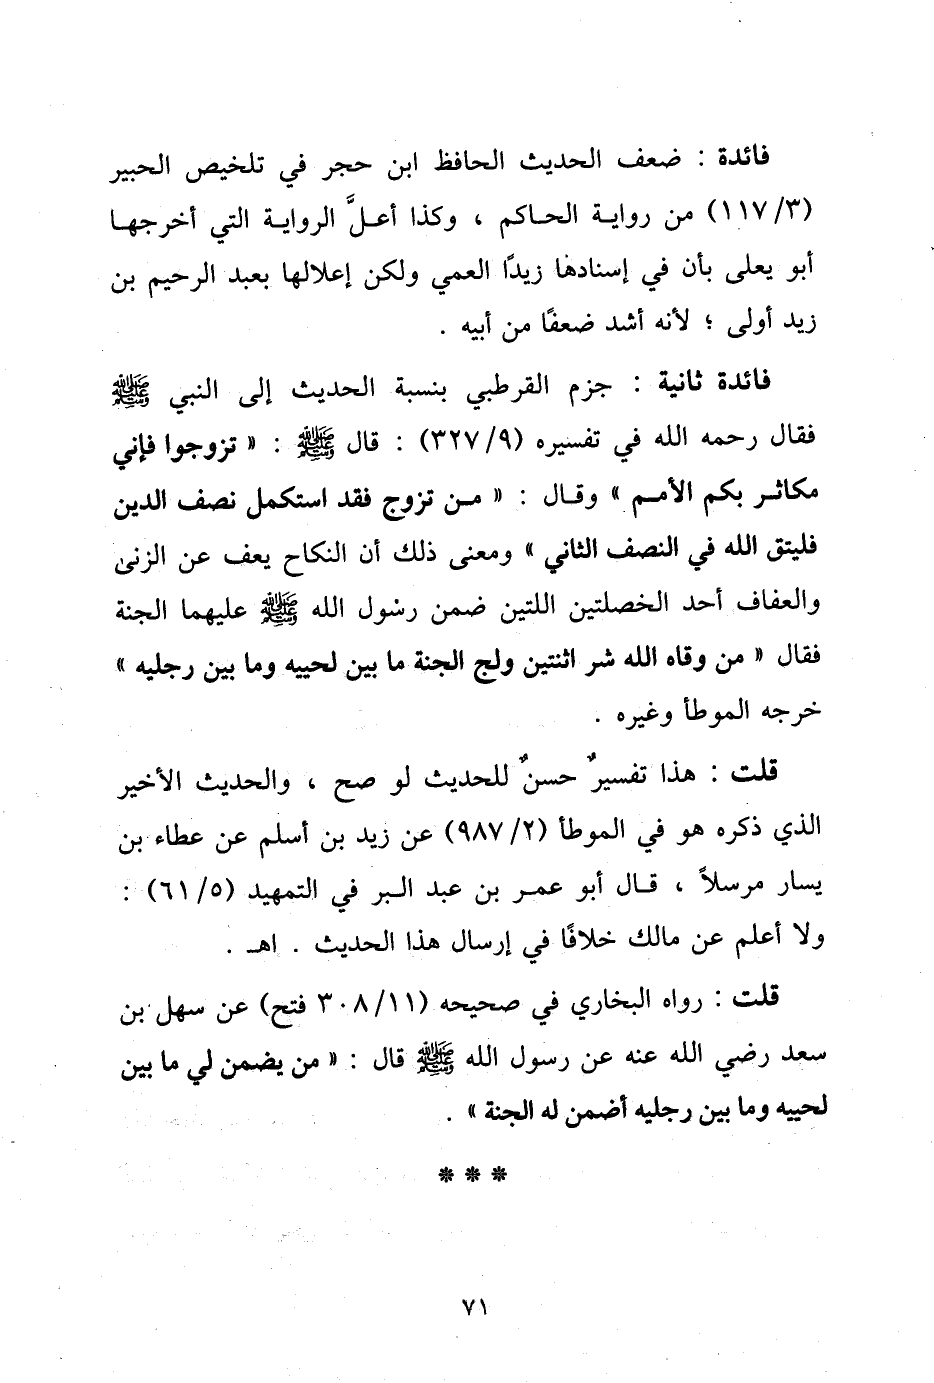 فائدة : ضعف الحديث الحافظ ابن حجر في تلخيص الحبير
(٣/١١٧) من رواية الحاكم ، وكذا أعلَّ الرواية التي أخرجها
أبو يعلى بأن في إسنادها زيدًا العمي ولكن إعلالها بعبد الرحيم بن
زيد أولى ؛ لأنه أشد ضعفًا من أبيه .
فائدة ثانية : جزم القرطبي بنسبة الحديث إلى النبي ﷺ
فقال رحمه الله في تفسيره (٩/٣٢٧) : قال ﷺ : « تزوجوا فإني
مكاثر بكم الأمم » وقال : « من تزوج فقد استكمل نصف الدين
فليتق الله في النصف الثاني » ومعنى ذلك أن النكاح يعف عن الزنىٰ
والعفاف أحد الخصلتين اللتين ضمن رسول الله ﷺ عليهما الجنة
فقال « من وقاه الله شر اثنتين ولج الجنة ما بين لحييه وما بين رجليه »
خرجه الموطأ وغيره .
قلت : هذا تفسيرٌ حسنٌ للحديث لو صح ، والحديث الأخير
الذي ذكره هو في الموطأ (٢/٩٨٧) عن زيد بن أسلم عن عطاء بن
يسار مرسلاً ، قال أبو عمر بن عبد البر في التمهيد (٥/٦١) :
ولا أعلم عن مالك خلافًا في إرسال هذا الحديث . اهـ .
قلت : رواه البخاري في صحيحه (١١/٣٠٨ فتح) عن سهل بن
سعد رضي الله عنه عن رسول الله ﷺ قال : « من يضمن لي ما بين
لحييه وما بين رجليه أضمن له الجنة » .
* * *
٧١